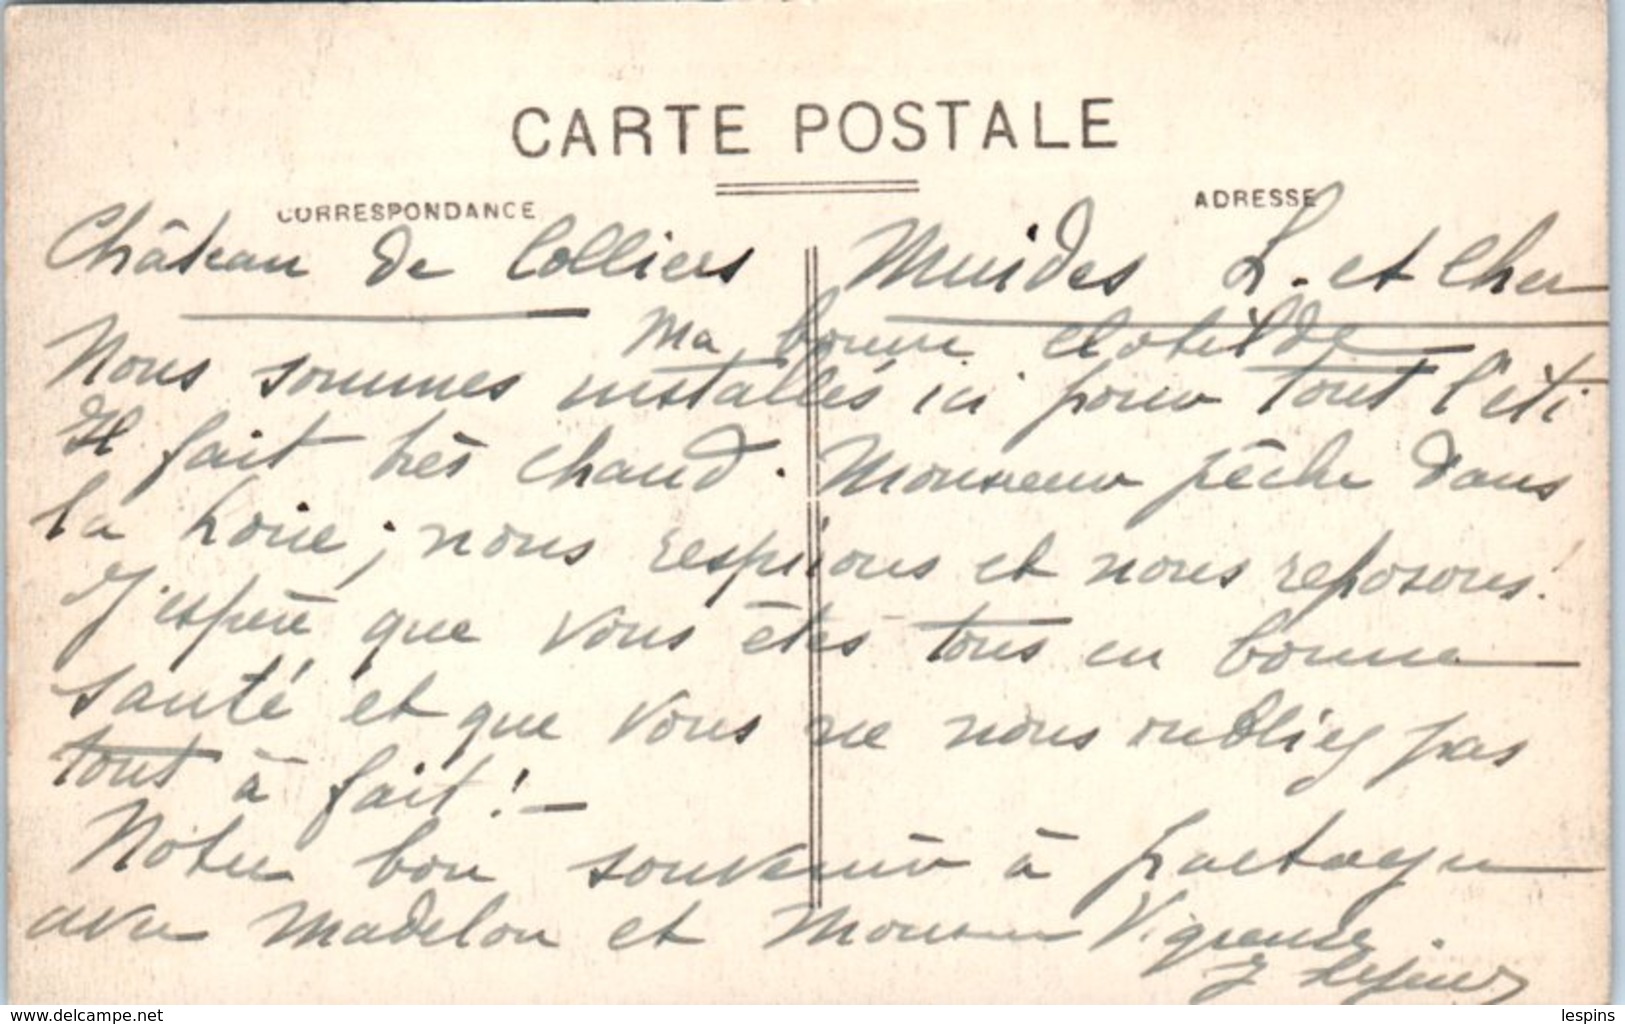 CARTE POSTALE
CORRESPONDANCE
ADRESSE
Château de Colliers Muides L. et Cher
Ma bonne Clotilde
Nous sommes installés ici pour tout l'été
Il fait très chaud. Monsieur pêche dans
la Loire ; nous respirons et nous reposons !
J'espère que vous êtes tous en bonne
santé et que vous ne nous oubliez pas
tout à fait ! —
Notre bon souvenir à partager
avec Madelon et Monsieur
www.delcampe.net
lespins